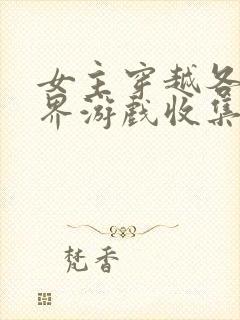 女主穿越各
界游戏收集
梵香